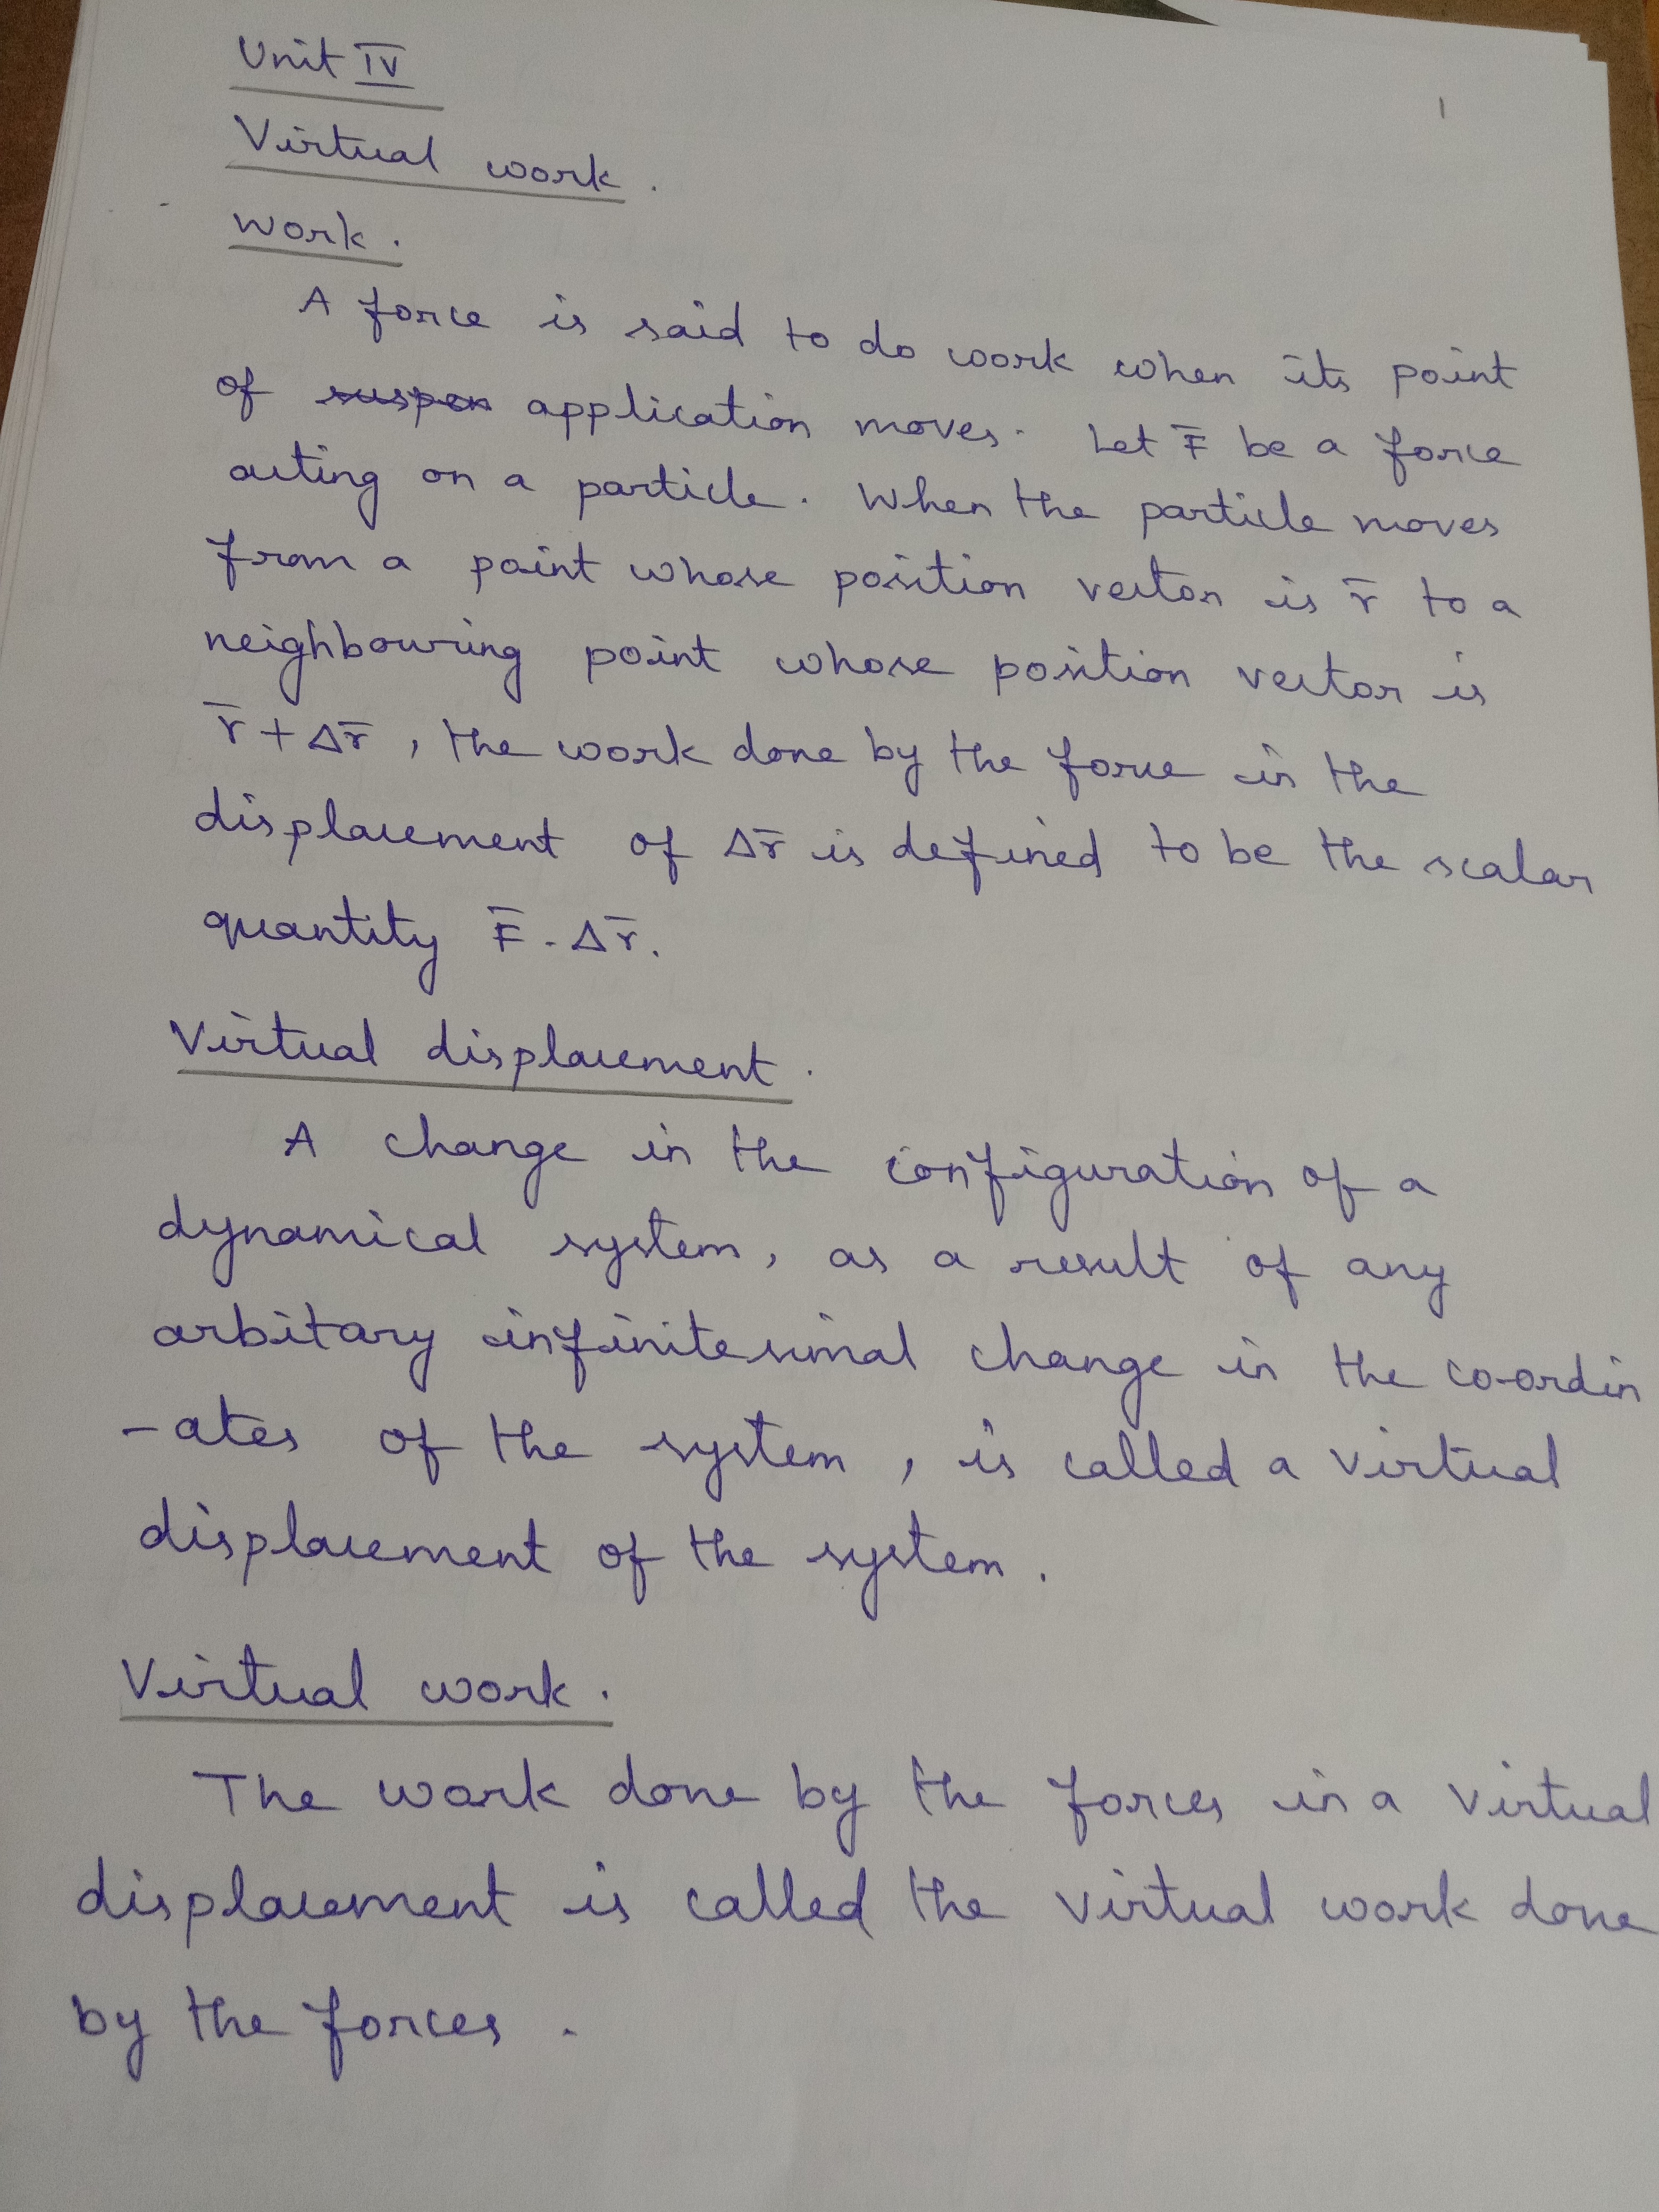 Unit IV
1
Virtual work.
Work.
A force is said to do work when its point
of suspen application moves. Let F̄ be a force
acting on a particle. When the particle moves
from a point whose position vector is r̄ to a
neighbouring point whose position vector is
r̄ + Δr̄, the work done by the force in the
displacement of Δr̄ is defined to be the scalar
quantity F̄ . Δr̄.
Virtual displacement.
A change in the configuration of a
dynamical system, as a result of any
arbitary infinitesimal change in the co-ordin
-ates of the system, is called a virtual
displacement of the system.
Virtual work.
The work done by the forces in a virtual
displacement is called the virtual work done
by the forces.